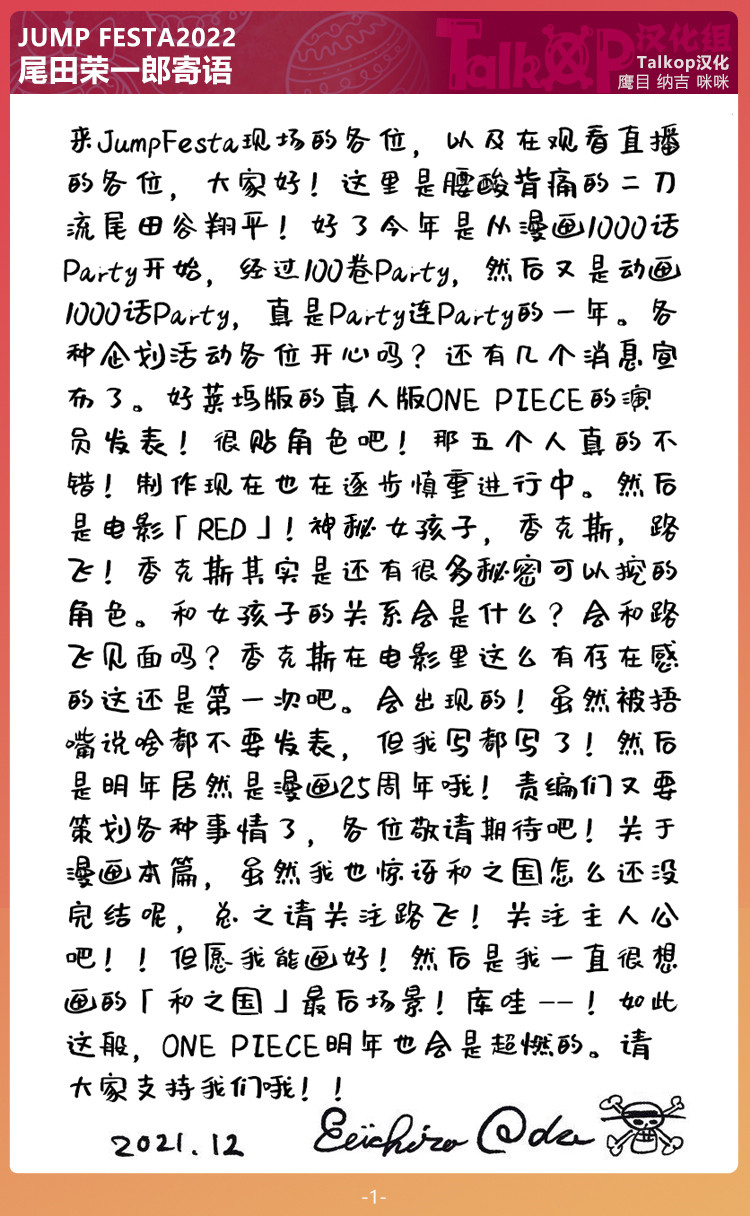 JUMP FESTA2022
尾田荣一郎寄语
TalkOP汉化组
Talkop汉化
鹰目 纳吉 咪咪
来JumpFesta现场的各位，以及在观看直播
的各位，大家好！这里是腰酸背痛的二刀
流尾田谷翔平！好了今年是从漫画1000话
Party开始，经过100卷Party，然后又是动画
1000话Party，真是Party连Party的一年。各
种企划活动各位开心吗？还有几个消息宣
布了。好莱坞版的真人版ONE PIECE的演
员发表！很贴角色吧！那五个人真的不
错！制作现在也在逐步慎重进行中。然后
是电影「RED」！神秘女孩子，香克斯，路
飞！香克斯其实是还有很多秘密可以挖的
角色。和女孩子的关系会是什么？会和路
飞见面吗？香克斯在电影里这么有存在感
的这还是第一次吧。会出现的！虽然被捂
嘴说啥都不要发表，但我写都写了！然后
是明年居然是漫画25周年哦！责编们又要
策划各种事情了，各位敬请期待吧！关于
漫画本篇，虽然我也惊讶和之国怎么还没
完结呢，总之请关注路飞！关注主人公
吧！！但愿我能画好！然后是我一直很想
画的「和之国」最后场景！库哇——！如此
这般，ONE PIECE明年也会是超燃的。请
大家支持我们哦！！
2021.12 Eiichiro Oda
-1-